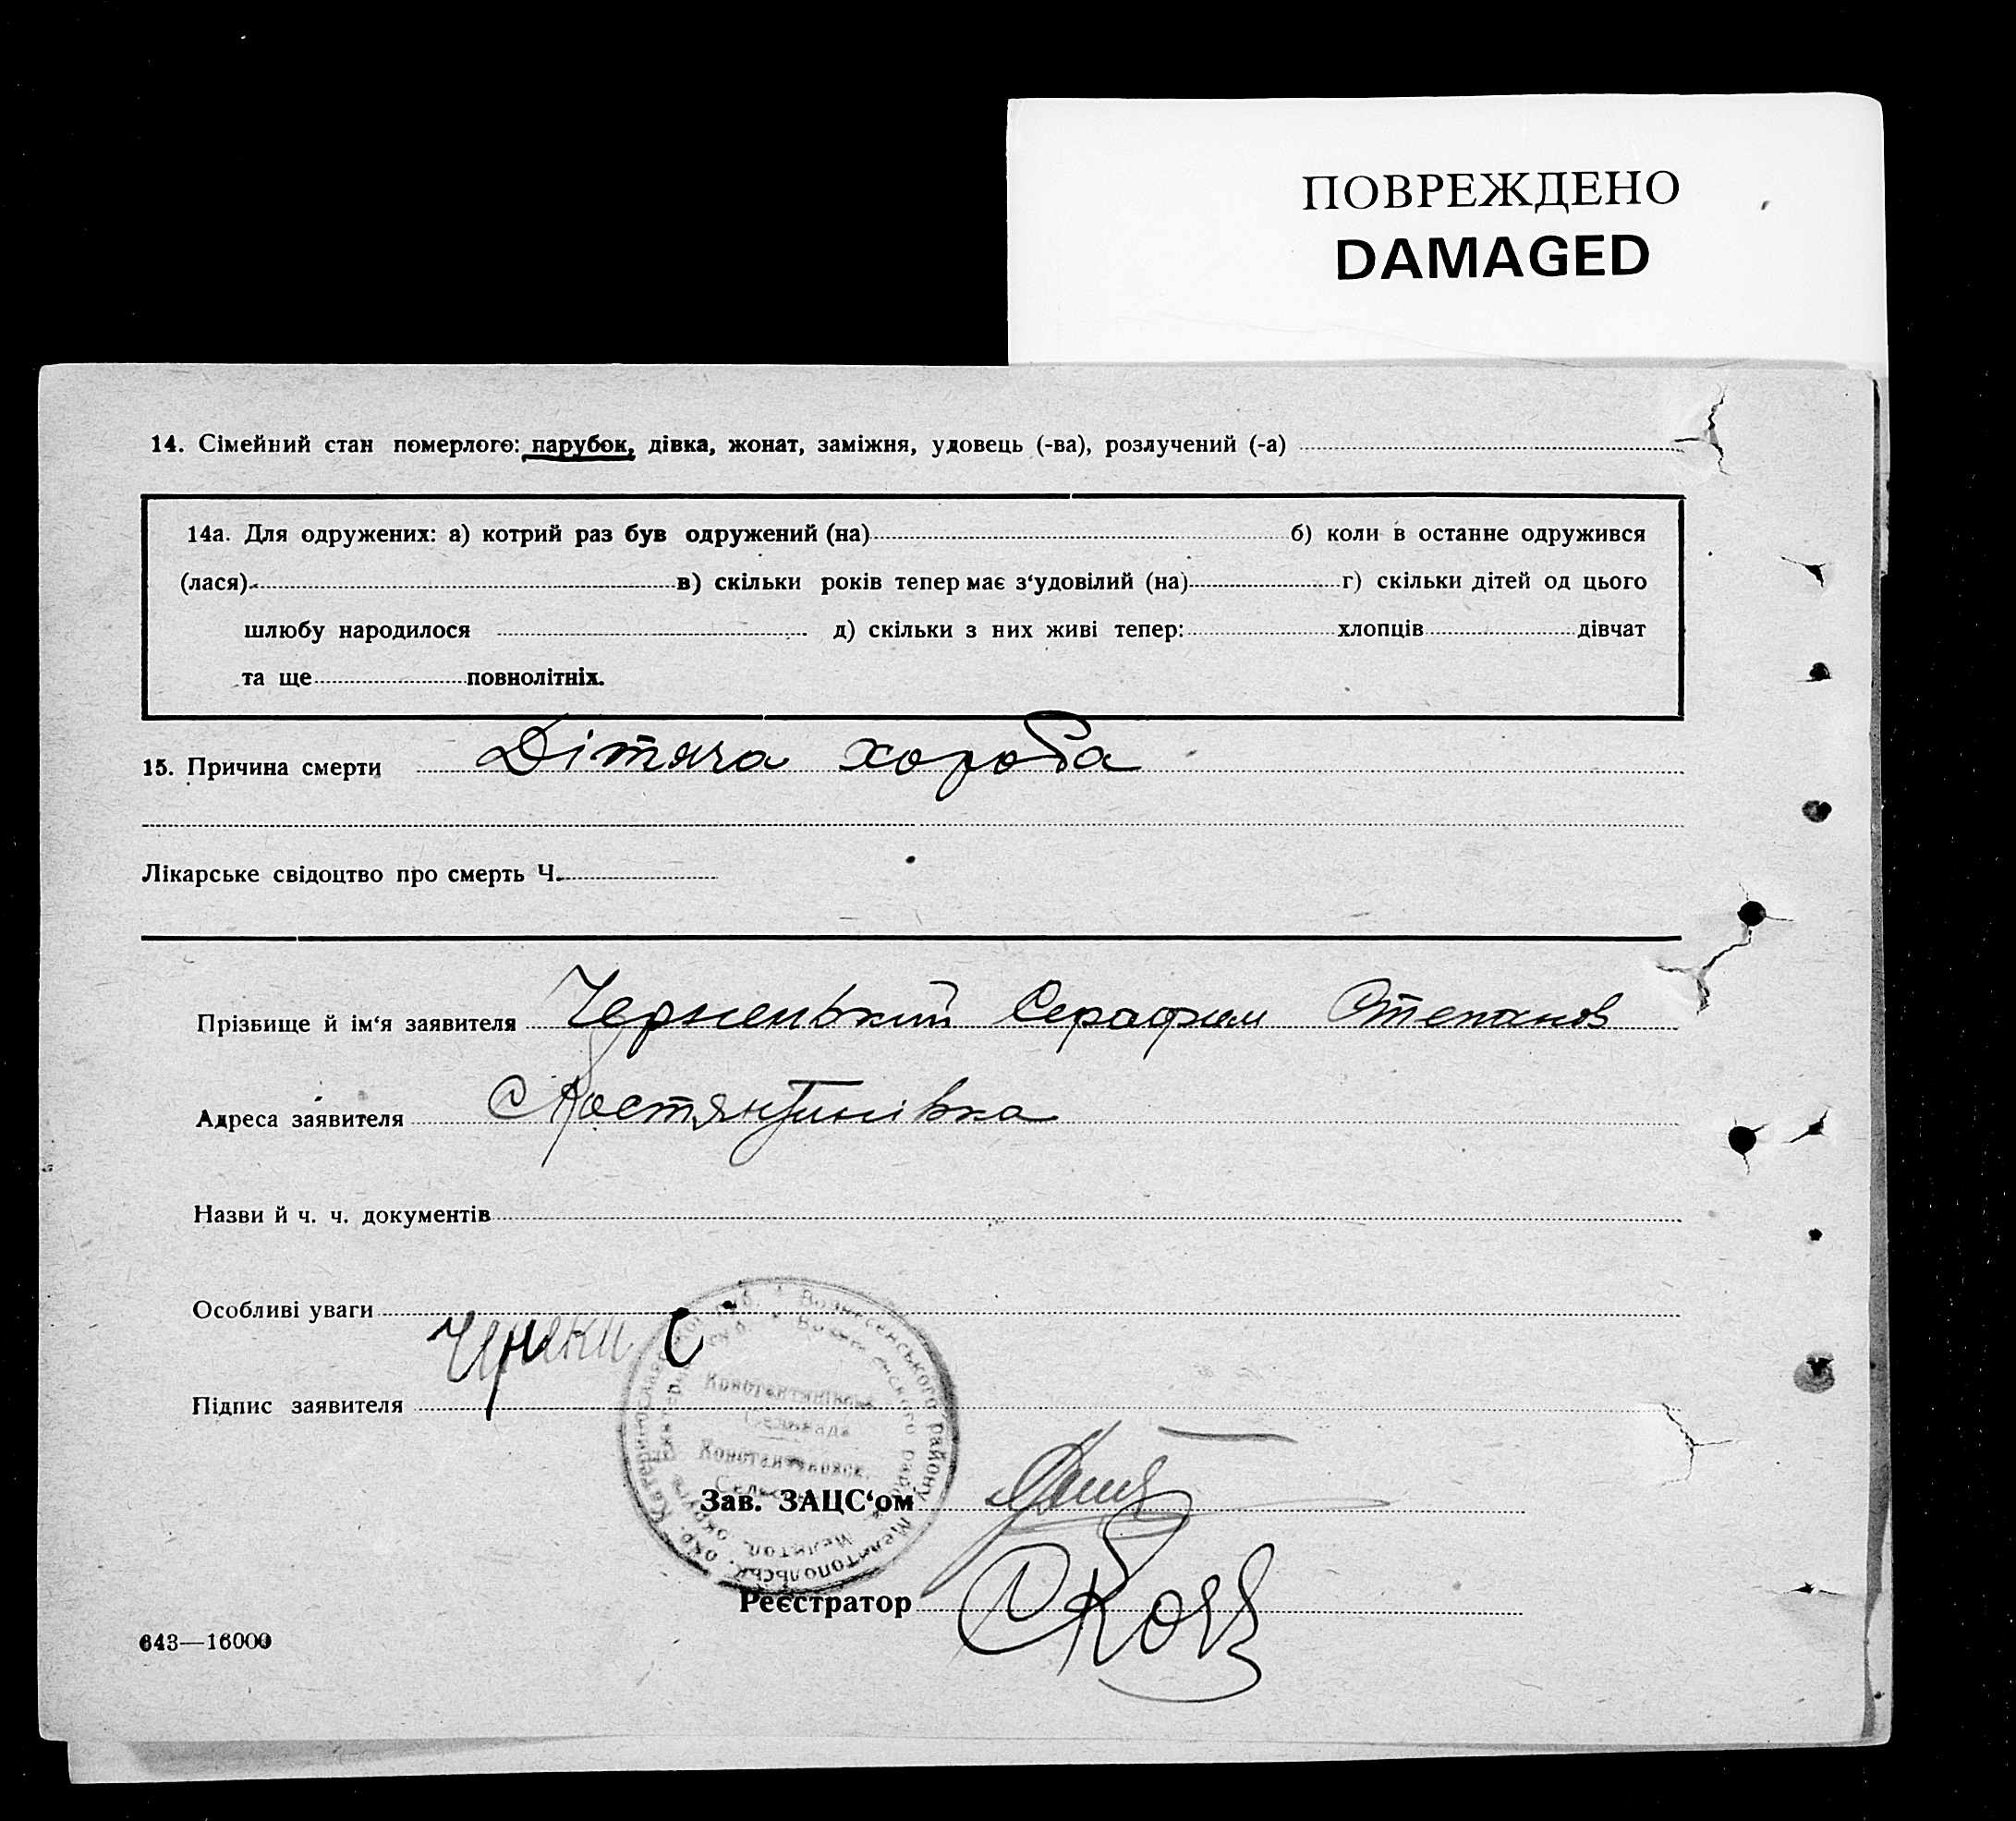 ПОВРЕЖДЕНО
DAMAGED
14. Сімейний стан померлого: парубок, дівка, жонат, заміжня, удовець (-ва), розлучений (-а)
14а. Для одружених: а) котрий раз був одружений (на) б) коли в останнє одружився
(лася) в) скільки років тепер має з‘удовілий (на) г) скільки дітей од цього
шлюбу народилося д) скільки з них живі тепер: хлопців дівчат
та ще повнолітніх.
15. Причина смерти Дітяча хороба
Лікарське свідоцтво про смерть Ч.
Прізвище й ім‘я заявителя Серафим Степанов
Адреса заявителя С Костянтинівка
Назви й ч. ч. документів
Особливі уваги
Підпис заявителя
Вознесенського району Мелитопольськ. окр. Катеринославськ
Константинівськ
Сельрада
Константиновск.
Зав. ЗАЦС‘ом
Реєстратор
643—16000